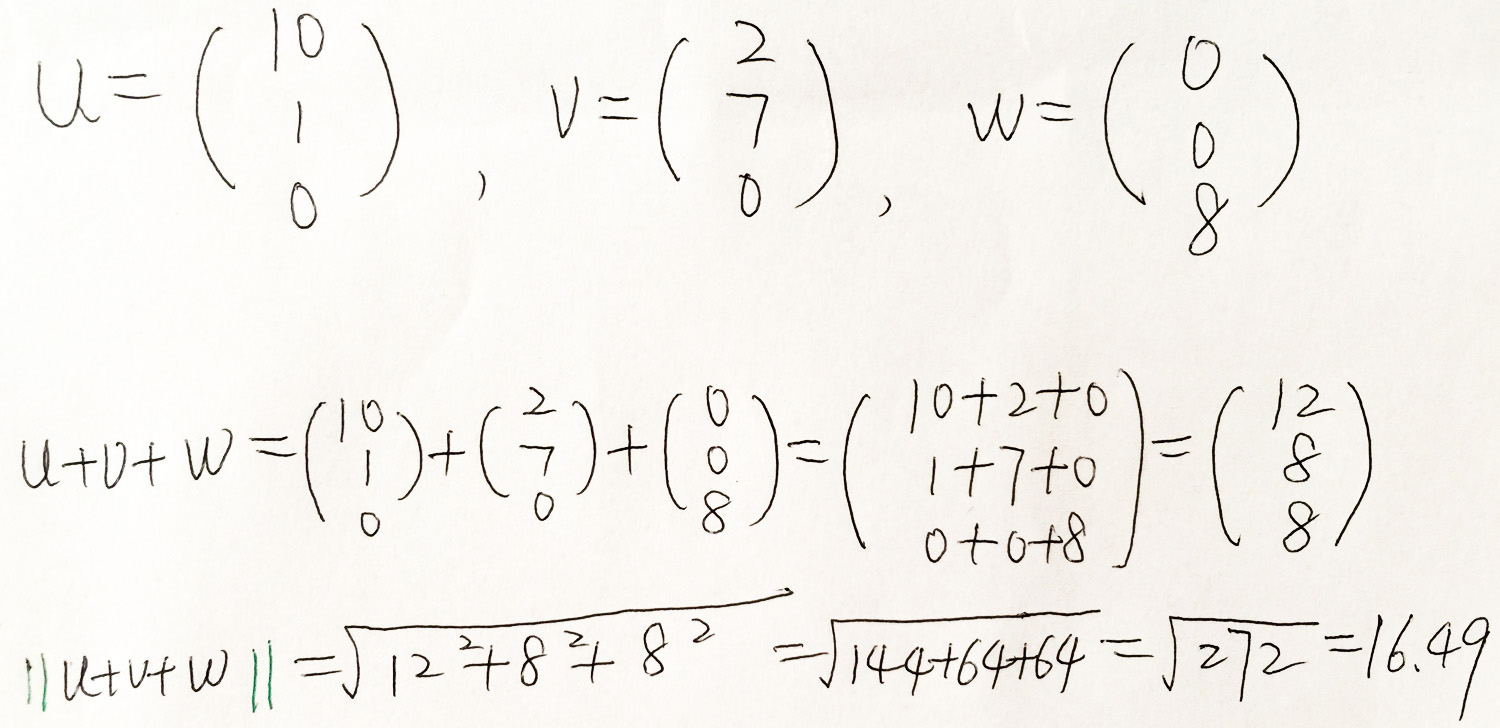 u = (10 1 0), v = (2 7 0), w = (0 0 8)
u+v+w = (10 1 0) + (2 7 0) + (0 0 8) = (10+2+0 1+7+0 0+0+8) = (12 8 8)
||u+v+w|| = √(12²+8²+8²) = √(144+64+64) = √272 = 16.49